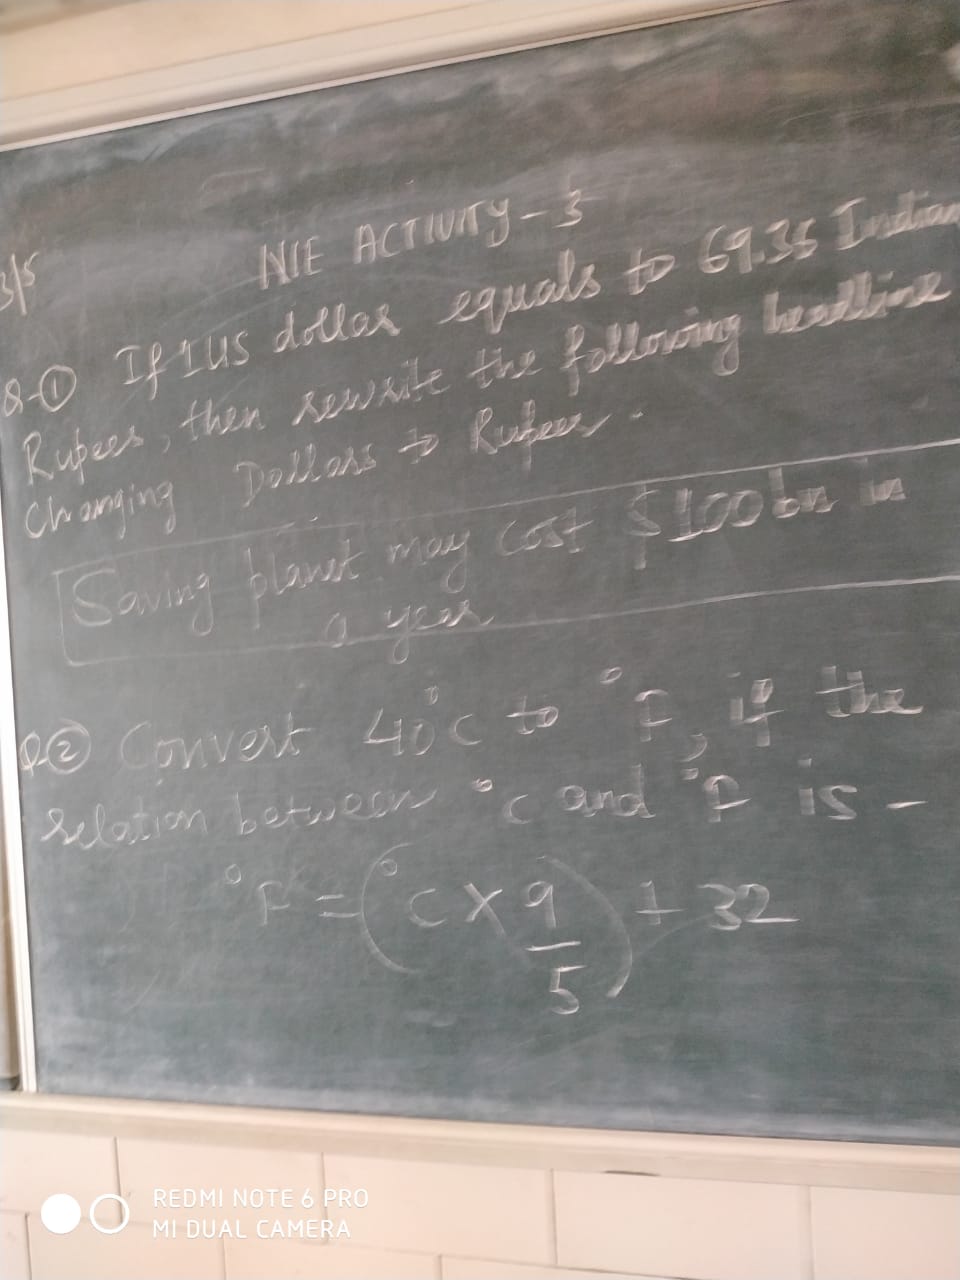 3/5
NIE ACTIVITY-3
Q-① If 1 US dollar equals to 69.35 Indian
Rupees, then rewrite the following headline
Changing Dollars to Rupees.
Saving planet may cost $100bn in
a year
Q② Convert 40°C to °F, if the
relation between °C and °F is -
°F = (°C × 9/5) + 32
REDMI NOTE 6 PRO
MI DUAL CAMERA